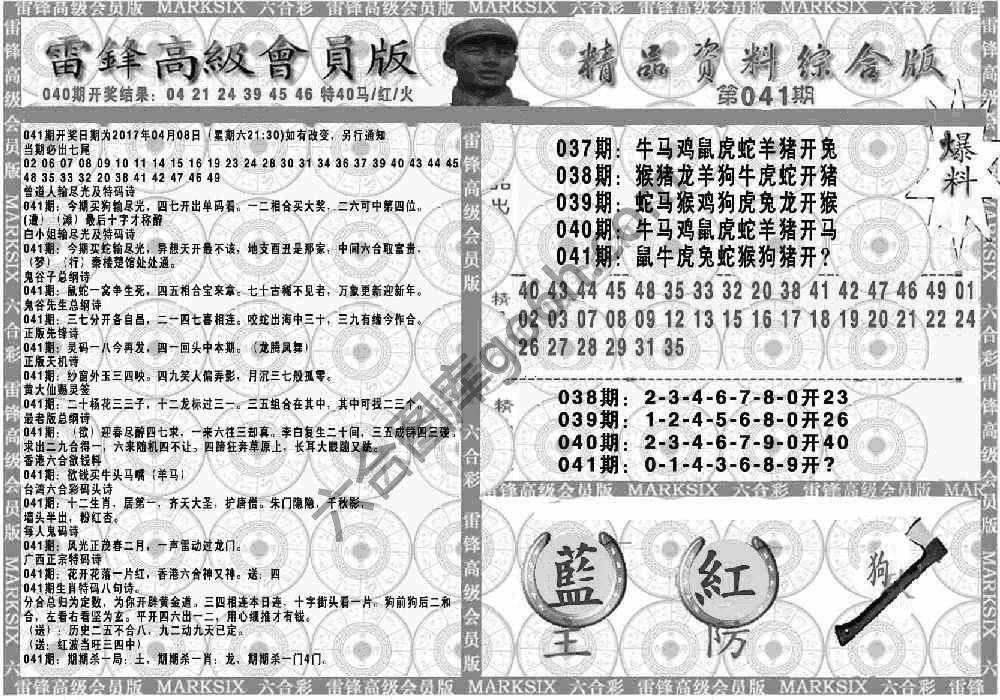 雷锋高级会员版 MARKSIX 六合彩 雷锋高级会员版 MARKSIX 六合彩 雷锋高级会员版
雷鋒高級會員版
精品资料综合版
040期开奖结果: 04 21 24 39 45 46 特40马/红/火
第041期
041期开奖日期为2017年04月08日 (星期六21:30)如有改变,另行通知
当期必出七尾
02 06 07 08 09 10 11 14 15 16 19 23 24 28 30 31 34 36 37 39 40 43 44 45
48 35 33 32 20 38 41 42 47 46 49
曾道人输尽光及特码诗
041期: 今期买狗输尽光,四七开出单码看。一二相合买大奖,二六可中第四位。
(遭) (滩) 最后十字才称醉
白小姐输尽光及特码诗
041期: 今期买蛇输尽光,异想天开最不该,地支酉丑是那家,中间六合取富贵,
(梦) (行) 秦楼楚馆处处通。
鬼谷子总纲诗
041期: 鼠蛇一窝争生死,四五相合宝来拿。七十古稀不见老,万象更新迎新年。
鬼谷先生总纲诗
041期: 三七分开各自昌,二一四七喜相连。咬蛇出海中三十,三九有缘今作合。
正版先锋诗
041期: 灵码一八今再发,四一回头中本期。(龙腾凤舞)
正版天机诗
041期: 纱窗外玉三四映。四九笑人偏弄影,月沉三七般孤零。
黄大仙赐灵签
041期: 二十杨花三三子,十二龙标过三一。三五组合在其中,其中可找二三个。
最老版总纲诗
041期: (欲) 迎春尽醉四七求,一来六往三却真。李白复生二十间,三五成群四三碰。
求出二九合得一,六来随机四不让。四蹄狂奔草原上,长耳大眼蹦又跳。
香港六合欲钱料
041期: 欲钱买牛头马嘴 (羊马)
台湾六合彩码头诗
041期: 十二生肖,居第一,齐天大圣,护唐僧。朱门隐隐,千秋影,
墙头半出,粉红杏。
每人鬼码诗
041期: 风光正茂春二月,一声雷动过龙门。
广西正宗特码诗
041期: 花开花落一片红,香港六合神又神。送: 四
041期生肖特码八句诗。
分合总归为定数,为你开辟黄金道。三四相连本日连,十字街头看一片。狗前狗后二和
合,左看右看竖为玄。平开四六出一二,用心领推才有钱。
(送): 历史二五不合八,九二动九天已定。
(送: 红波当旺三四中)
041期: 期期杀一局: 土,期期杀一肖: 龙,期期杀一门4门。
爆料
037期: 牛马鸡鼠虎蛇羊猪开兔
038期: 猴猪龙羊狗牛虎蛇开猪
039期: 蛇马猴鸡狗虎兔龙开猴
040期: 牛马鸡鼠虎蛇羊猪开马
041期: 鼠牛虎兔蛇猴狗猪开?
40 43 44 45 48 35 33 32 20 38 41 42 47 46 49 01
02 03 07 08 09 12 13 15 16 17 18 19 20 21 22 24
26 27 28 30 31 35
038期: 2-3-4-6-7-8-0开23
039期: 1-2-4-5-6-8-0开26
040期: 2-3-4-6-7-9-0开40
041期: 0-1-4-3-6-8-9开?
雷锋高级会员版 MARKSIX 六合彩 雷锋高级会员版 MARK
藍
主
紅
防
狗
六合图库
雷锋高级会员版 MARKSIX 六合彩 雷锋高级会员版 MARKSIX 六合彩 雷锋高级会员版